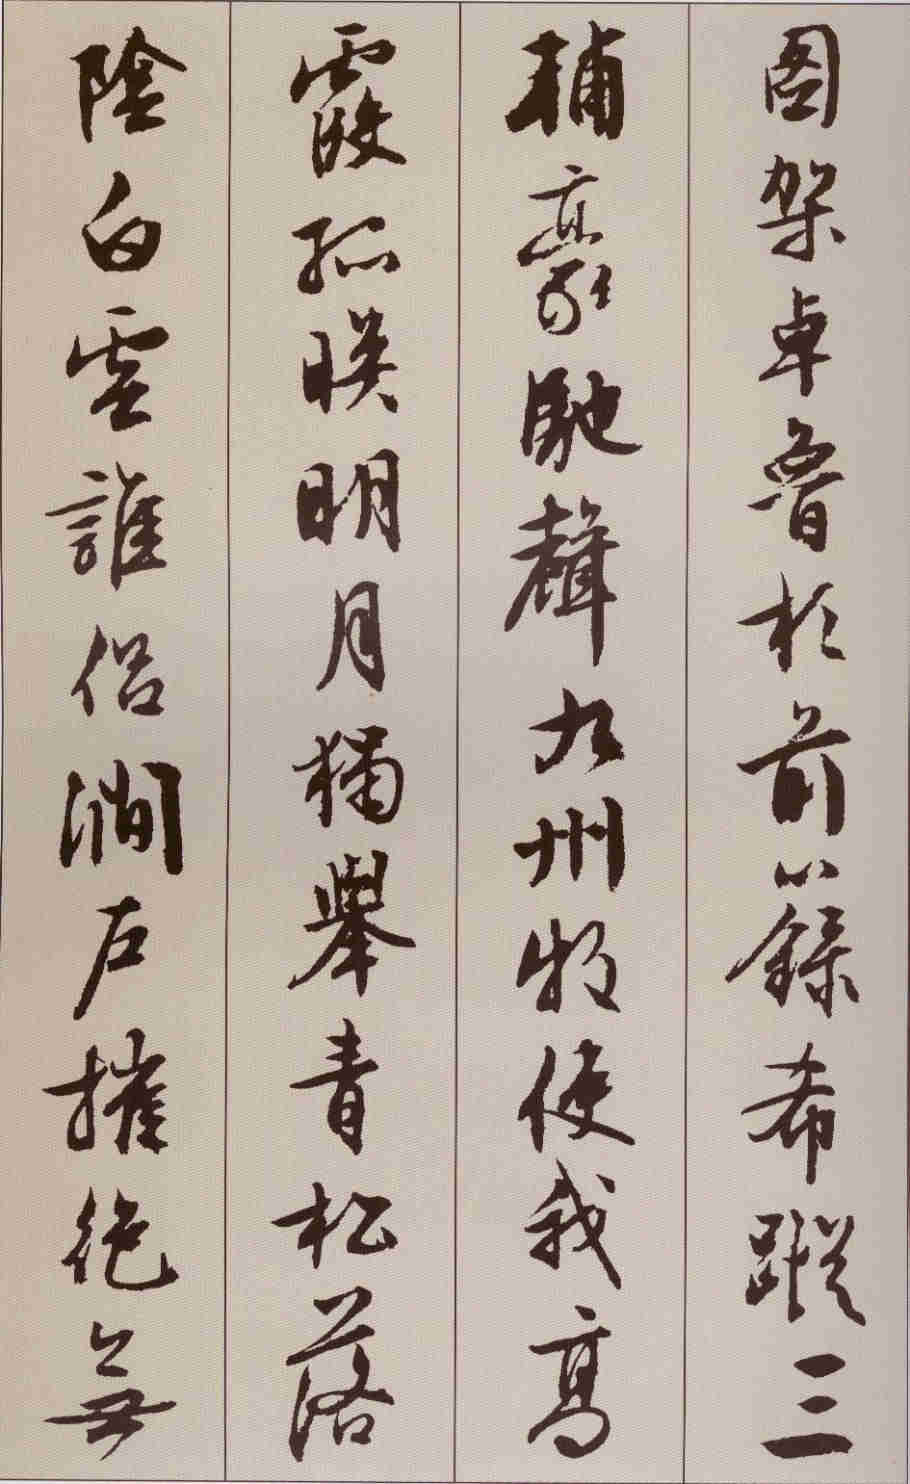 圖架卓魯於前籙希蹤三
輔豪馳聲九州牧使我高
霞孤映明月獨舉青松落
陰白雲誰侶澗戶摧絕無